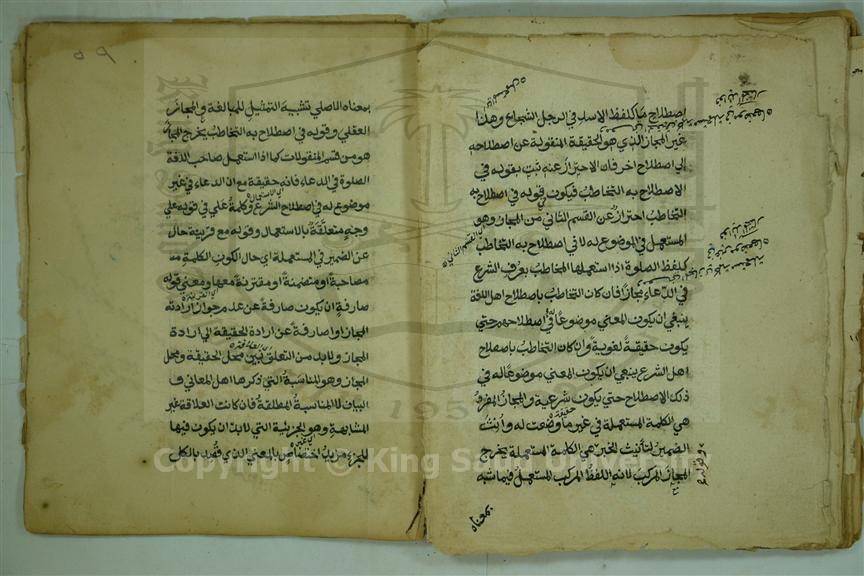 اصطلاح ما كلفظ الاسد في الرجل الشجاع وهذا
غير المجاز الذي هو الحقيقة المنقولة عن اصطلاحه
الي اصطلاح اخر فان الاحتراز عنه ثبت بقوله في
الاصطلاح به التخاطب فيكون قوله في اصطلاح به
التخاطب احتراز عن القسم الثاني من المجاز وهو
المستعمل في الموضوع له لا في اصطلاح به التخاطب
كلفظ الصلوة اذا استعملها المخاطب بعرف الشرع
في الدعاء مجازا فان كان التخاطب باصطلاح اهل اللغة
ينبغي ان يكون المعني موضوعا في اصطلاحهم حتي
يكون حقيقة لغوية وان كان التخاطب باصطلاح
اهل الشرع ينبغي ان يكون المعني موضوعا له في
ذلك الاصطلاح حتي يكون شرعية والمجاز المفرد
هي الكلمة المستعملة في غير ما وضعت له وانيث
الضمير لتأنيث الخبر هي الكلمة المستعملة يخرج
المجاز المركب لانه اللفظ المركب المستعمل فيما شبه
بمعناه
بمعناه الاصلي تشبيه التمثيل للمبالغة والمجاز
العقلي وقوله في اصطلاح به التخاطب يخرج المجاز
هو من قسم المنقولات كما اذا استعمل صاحب اللغة
الصلوة في الدعاء فانه حقيقة مع ان الدعاء في غير
موضوع له في اصطلاح الشرع وكلمة علي في قوله علي
وجه متعلقة بالاستعمال وقوله مع قرينة حال
عن الضمير في المستعملة اي حال الكون الكلمة مع
مصاحبة او متضمنة او مقترنة معها ومعني قوله
صارفة ان يكون صارفة عن عدم جواز ارادته
المجاز او صارفة عن ارادة الحقيقة الي ارادة
المجاز ولابد من التعلق بين محل الحقيقة ومحل
المجاز وهو المناسبة التي ذكرها اهل المعاني و
البيان لا المناسبة المطلقة فان كانت العلاقة غير
المشابهة وهو الجزئية التي لابد ان يكون فيها
للجزء مزيد اختصاص بالمعني الذي قصد بالكل
Copyright © King Saud University
1957